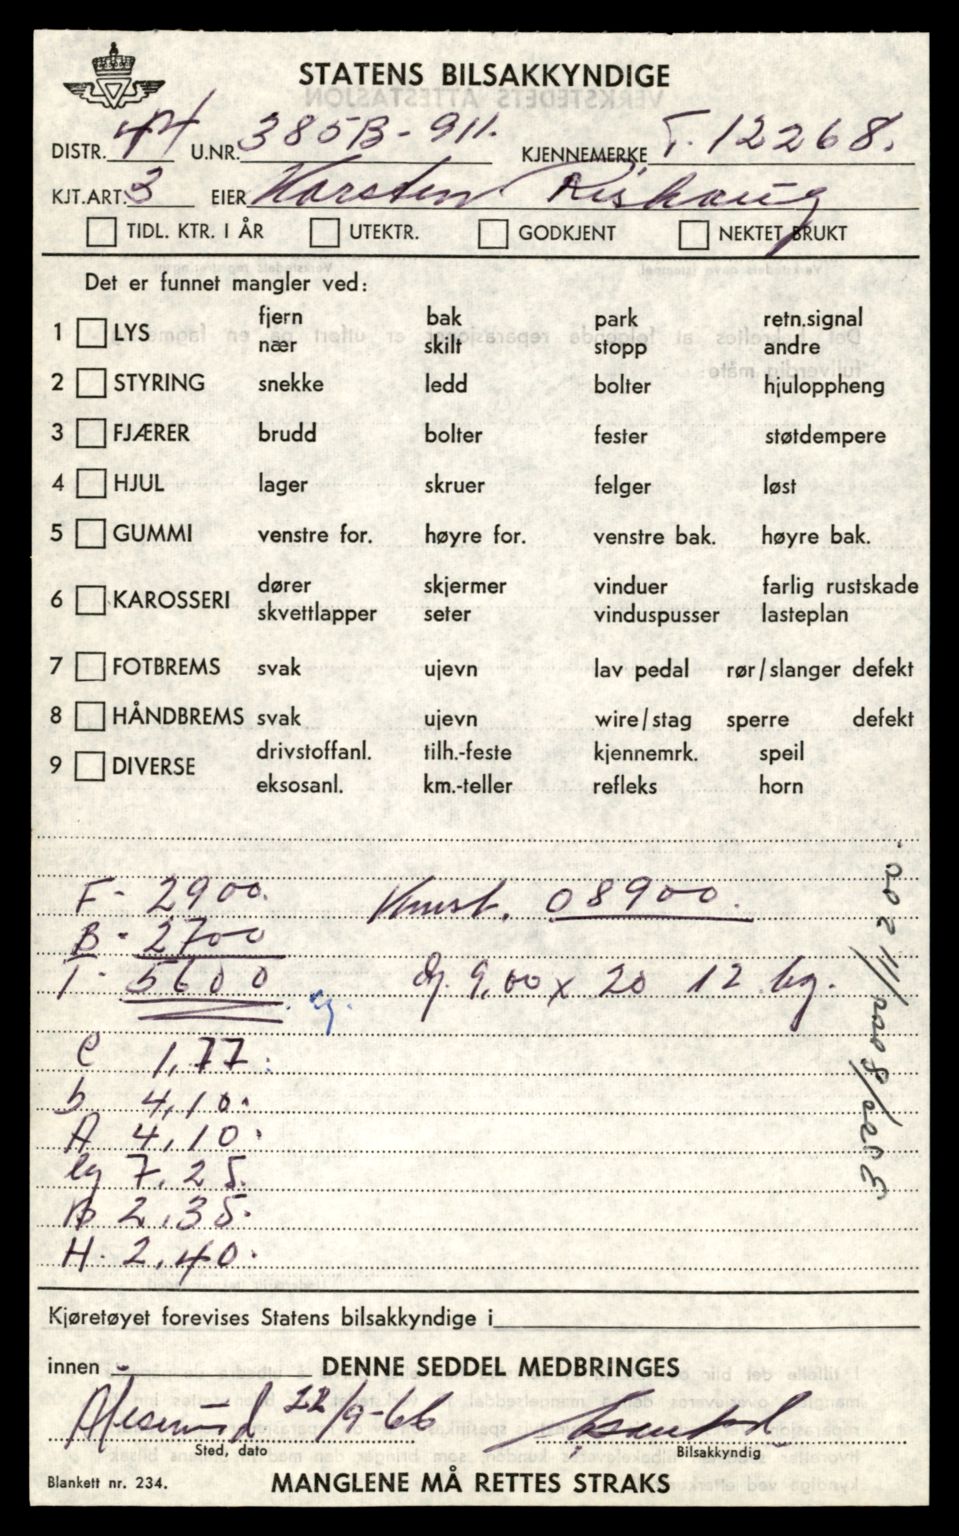 STATENS BILSAKKYNDIGE
DISTR. 44 U.NR. 385B-911. KJENNEMERKE T. 12268.
KJT.ART. 3 EIER Karsten Rishaug
TIDL. KTR. I ÅR UTEKTR. GODKJENT NEKTET BRUKT
Det er funnet mangler ved:
1 LYS fjern bak park retn.signal
nær skilt stopp andre
2 STYRING snekke ledd bolter hjuloppheng
3 FJÆRER brudd bolter fester støtdempere
4 HJUL lager skruer felger løst
5 GUMMI venstre for. høyre for. venstre bak. høyre bak.
6 KAROSSERI dører skjermer vinduer farlig rustskade
skvettlapper seter vinduspusser lasteplan
7 FOTBREMS svak ujevn lav pedal rør/slanger defekt
8 HÅNDBREMS svak ujevn wire/stag sperre defekt
9 DIVERSE drivstoffanl. tilh.-feste kjennemrk. speil
eksosanl. km.-teller refleks horn
F - 2900. 08900.
B - 2700
T - 5600 9,00 x 20 12 lag.
C 1,77.
b 4,10.
A 4,10.
lg 7,25.
B 2,35.
H. 2,40.
Kjøretøyet forevises Statens bilsakkyndige i
innen - DENNE SEDDEL MEDBRINGES
Ålesund 22/9-66
Sted, dato Bilsakkyndig
Blankett nr. 234. MANGLENE MÅ RETTES STRAKS